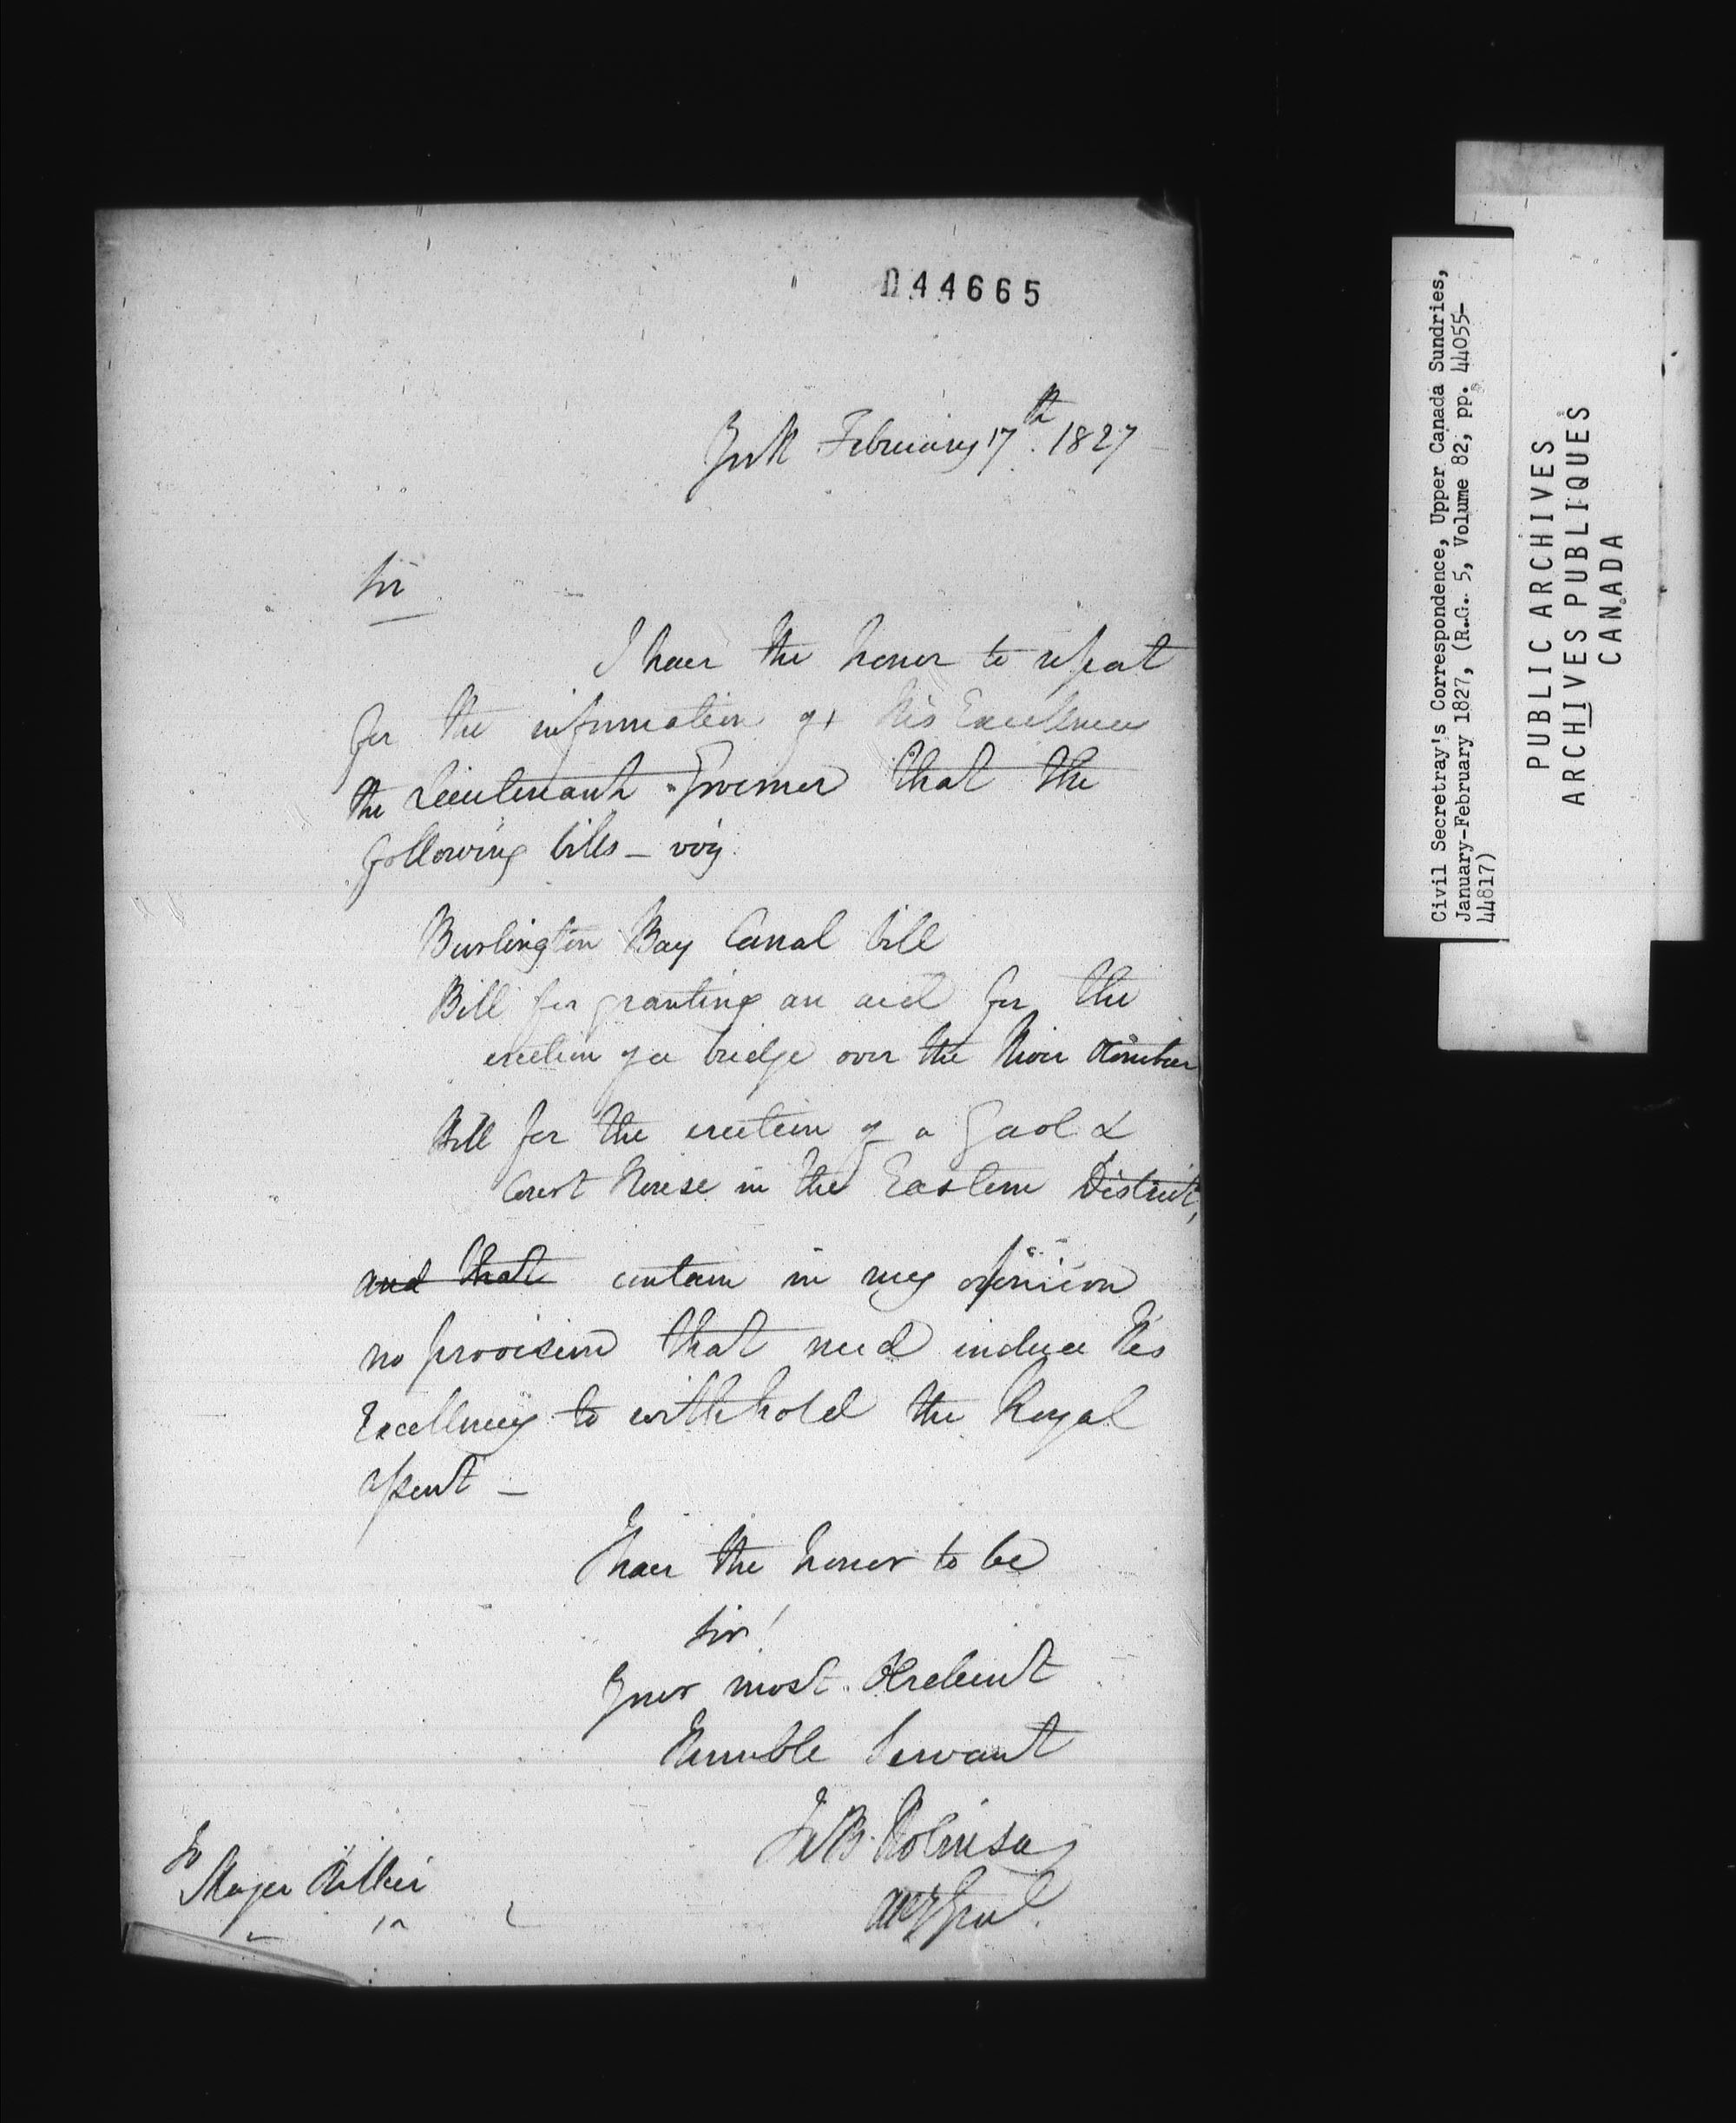 044665
York February 17th. 1827 –
Sir
I have the honor to report
for the information of His Excellency
the Lieutenant Governor that the
following bills – viz
Burlington Bay Canal bill
Bill for granting an aid for the
erection of a bridge over the River
Bill for the erection of a Gaol &
Court House in the Eastern District,
and that contain in my opinion
no provision that need induce His
Excellency to withhold the Royal
assent –
I have the honor to be
Sir!
Your most Obedient
Humble Servant
Jno B. Robinson
Atty Genl.
To
Major Hillier
Civil Secretray's Correspondence, Upper Canada Sundries,
January-February 1827, (R.G. 5, Volume 82, pp. 44055-
44817)
PUBLIC ARCHIVES
ARCHIVES PUBLIQUES
CANADA